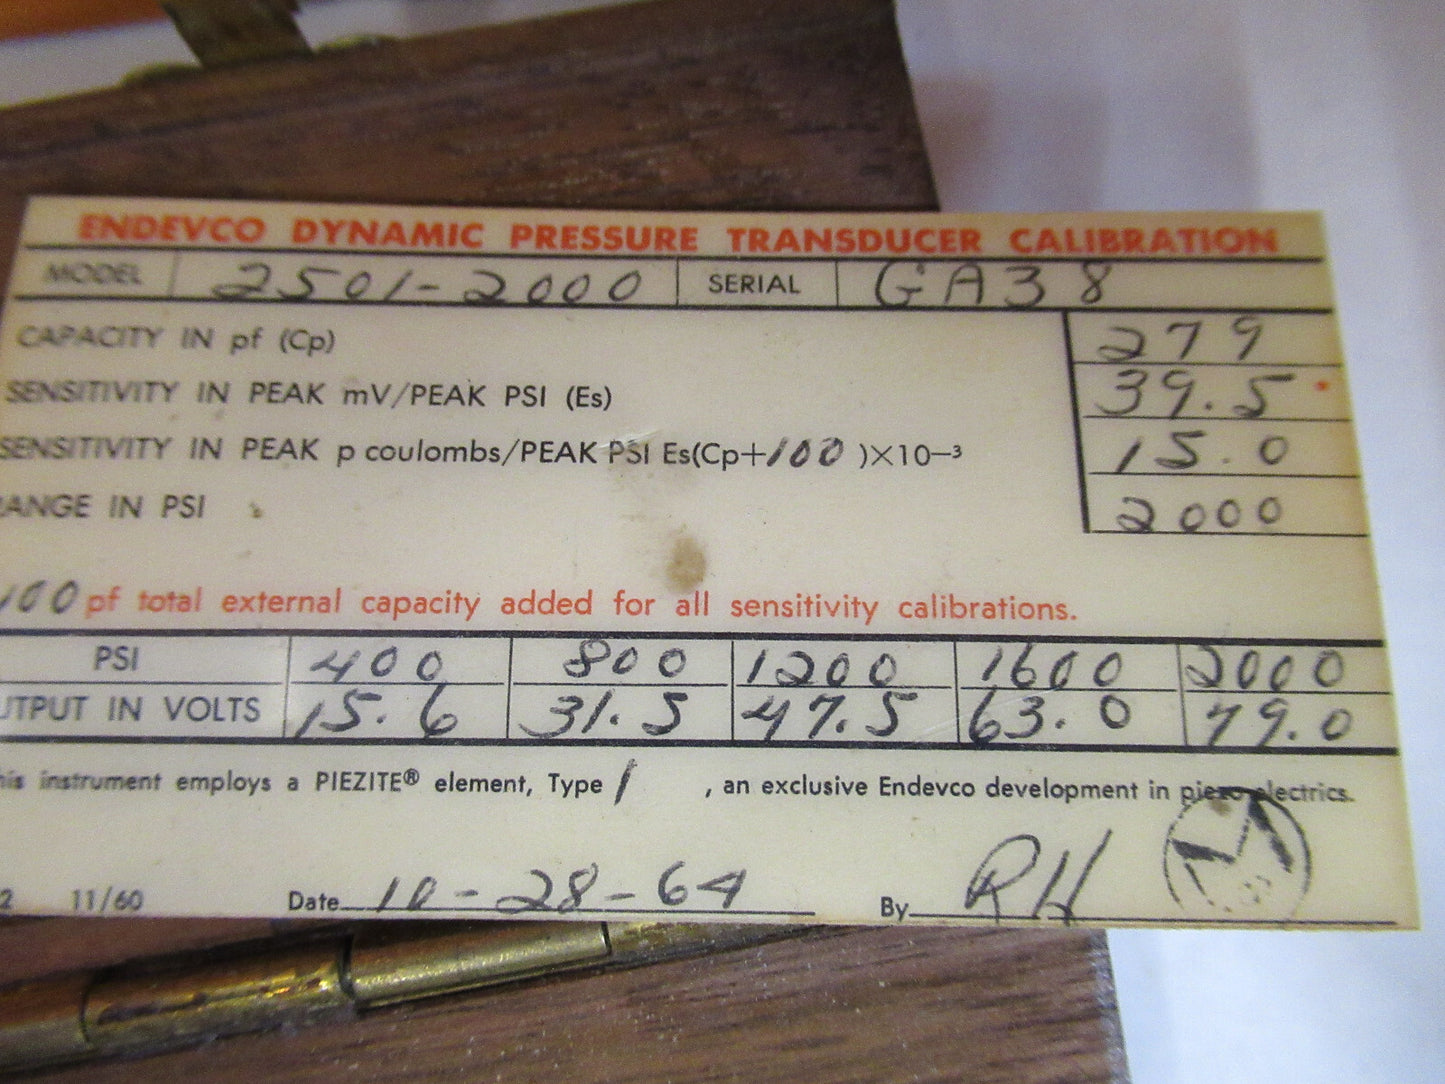 ENDEVCO DYNAMIC PRESSURE TRANSDUCER CALIBRATION
MODEL 2501-2000 SERIAL GA38
CAPACITY IN pf (Cp) 279
SENSITIVITY IN PEAK mV/PEAK PSI (Es) 39.5
SENSITIVITY IN PEAK p coulombs/PEAK PSI Es(Cp+100)×10⁻³ 15.0
ANGE IN PSI 2000
100 pf total external capacity added for all sensitivity calibrations.
PSI 400 800 1200 1600 2000
UTPUT IN VOLTS 15.6 31.5 47.5 63.0 79.0
his instrument employs a PIEZITE® element, Type 1, an exclusive Endevco development in piezo electrics.
2 11/60 Date 10-28-64 By RH